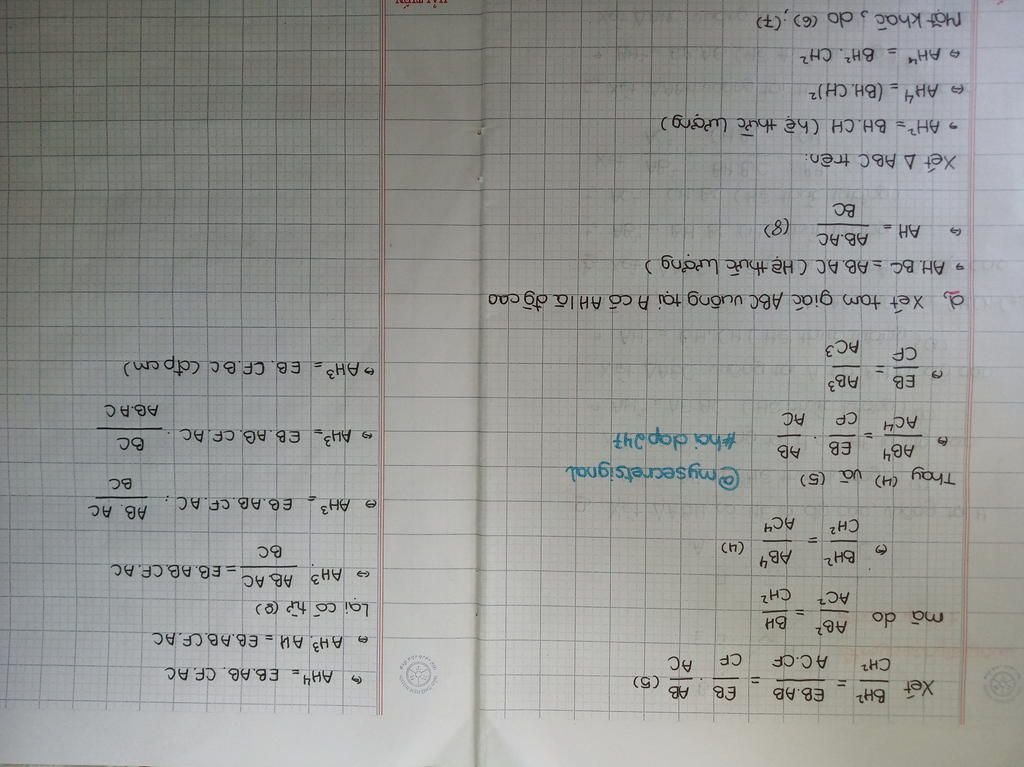 Xét BH²/CH² = EB.AB/AC.CF = EB/CF . AB/AC (5)
mà do AB²/AC² = BH/CH²
⇔ BH²/CH² = AB⁴/AC⁴ (4)
Thay (4) và (5)
@mysecretsignal
⇔ AB⁴/AC⁴ = EB/CF . AB/AC
#hoidap247
⇔ EB/CF = AB³/AC³
d, Xét tam giác ABC vuông tại A có AH là đg cao
→ AH.BC = AB.AC (Hệ thức lượng)
⇔ AH = AB.AC/BC (8)
Xét Δ ABC trên:
→ AH² = BH.CH (hệ thức lượng)
⇔ AH⁴ = (BH.CH)²
⇔ AH⁴ = BH².CH²
Mặt khác, do (6), (7)
⇔ AH⁴ = EB.AB.CF.AC
⇔ AH³.AH = EB.AB.CF.AC
Lại có từ (8)
⇔ AH³. AB.AC/BC = EB.AB.CF.AC
⇔ AH³ = EB.AB.CF.AC : AB.AC/BC
⇔ AH³ = EB.AB.CF.AC . BC/AB.AC
⇔ AH³ = EB.CF.BC (đpcm)